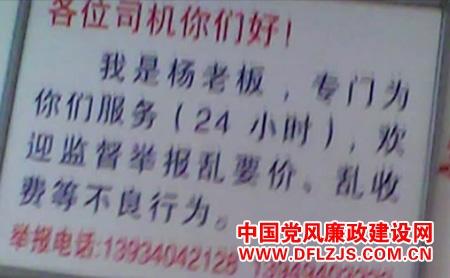 各位司机你们好！
我是杨老板，专门为
你们服务（24 小时），欢
迎监督举报乱要价、乱收
费等不良行为。
举报电话:13934042128
中国党风廉政建设网
WWW.DFLZJS.COM.CN